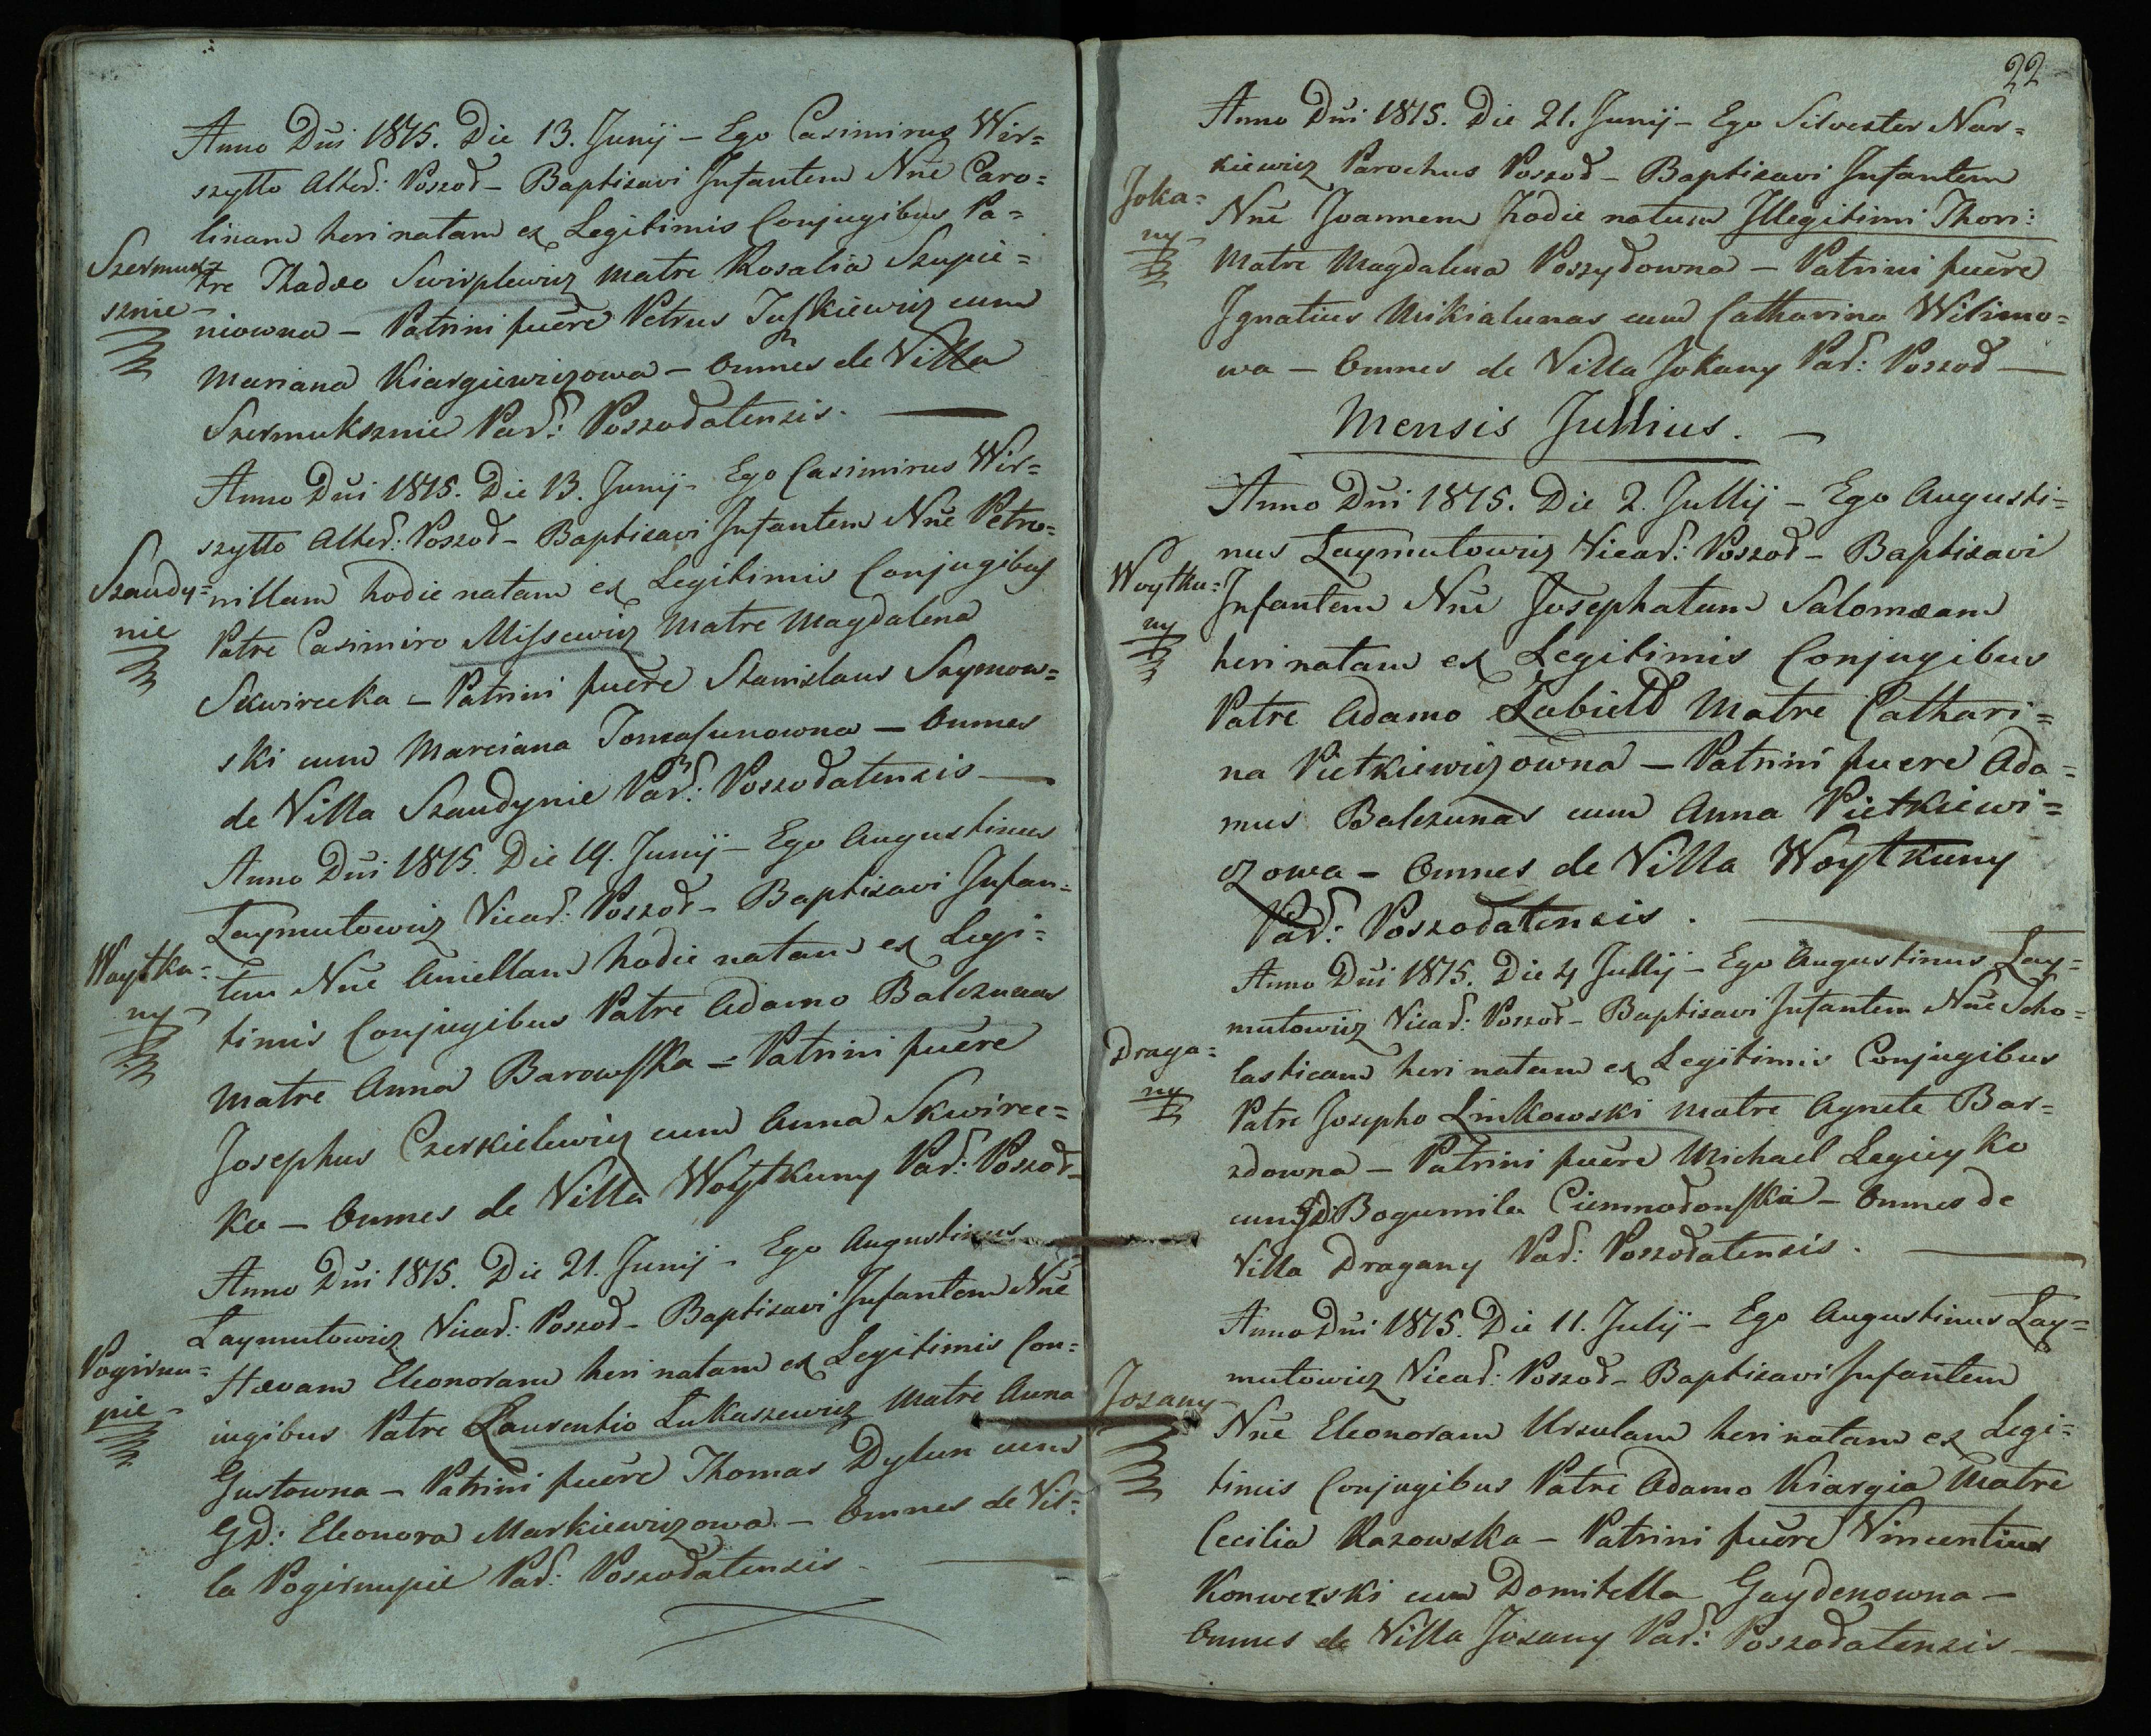 Anno Dni 1815. Die 13. Junij – Ego Casimirus Wir=
szytto Alted: Poszod – Baptisavi Infantem Nñe Caro=
linam heri natam ex Legitimis Conjugibus Pa=
Szermuk=
sznie
tre Thadæo Swirplewicz Matre Rosalia Szupie=
niowna – Patrini fuêre Petrus Juszkiewicz cum
Mariana Kiargiewiczowa – Omnes de Villa
Szermuksznie Par: Poszodatensis. —
Anno Dni 1815. Die 13. Junij – Ego Casimirus Wir=
szytto Alted: Poszod – Baptisavi Infantem Nñe Petro=
Szaudy=
nie
nillam hodie natam ex Legitimis Conjugibus
Patre Casimiro Missewicz Matre Magdalena
Skwirecka – Patrini fuêre Stanislaus Szymow=
ski cum Marciana Tomaszunowna – Omnes
de Villa Szaudynie Par: Poszodatensis —
Anno Dni 1815. Die 19. Junij – Ego Augustinus
Laymutowicz Vicar: Poszod – Baptisavi Infan=
Woytku=
ny
tem Nñe Aniellam hodie natam ex Legi=
timis Conjugibus Patre Adamo Balczunas
Matre Anna Barowska – Patrini fuêre
Josephus Czerkielewicz cum Anna Skwirec=
ka – Omnes de Villa Woytkuny Par: Poszod –
Anno Dni 1815. Die 21. Junij – Ego Augustinus
Laymutowicz Vicar: Poszod – Baptisavi Infantem Nñe
Pogirnu=
pie
Hævam Eleonoram heri natam ex Legitimis Con=
iugibus Patre Laurentio Lukaszewicz Matre Anna
Gustowna – Patrini fuêre Thomas Dylun cum
GD: Eleonora Markiewiczowa – Omnes de Vil=
la Pogirnupie Par: Poszodatensis –
22
Anno Dni 1815. Die 21. Junij – Ego Silvester Nar=
kiewicz Parochus Poszod – Baptisavi Infantem
Joka=
ny
Nñe Joannem hodie natum Illegitimi Thori:
Matre Magdalena Poszydowna – Patrini fuêre
Ignatius Mikialunas cum Catharina Wilimo=
wa – Omnes de Villa Jokany Par: Poszod —
Mensis Jullius. –
Anno Dni 1815. Die 2. Jullij – Ego Augusti=
nus Laymutowicz Vicar: Poszod – Baptisavi
Woytku=
ny
Infantem Nñe Josephatam Salomæam
heri natam ex Legitimis Conjugibus
Patre Adamo Labiełd Matre Cathari=
na Pietkiewiczowna – Patrini fuere Ada=
mus Balczunas cum Anna Pietkiewi=
czowa – Omnes de Villa Woytkuny
Par: Poszodatensis. —
Anno Dni 1815. Die 4 Jullij – Ego Augustinus Lay=
mutowicz Vicar: Poszod – Baptisavi Infantem Nñe Scho=
Draga=
ny
lasticam heri natam ex Legitimis Conjugibus
Patre Josepho Linkowski Matre Agnete Bar=
zdowna – Patrini fuêre Michael Legieyko
cum GD: Bogumila Ciemnodonska – Omnes de
Villa Dragany Par: Poszodatensis. —
Anno Dni 1815. Die 11. Julij – Ego Augustinus Lay=
mutowicz Vicar: Poszod – Baptisavi Infantem
Jozany
Nñe Eleonoram Ursulam heri natam ex Legi=
timis Conjugibus Patre Adamo Kiargia Matre
Cecilia Razowska – Patrini fuêre Vincentius
Konwerski cum Domitella Gaydenowna –
Omnes de Villa Jozany Par: Poszodatensis —